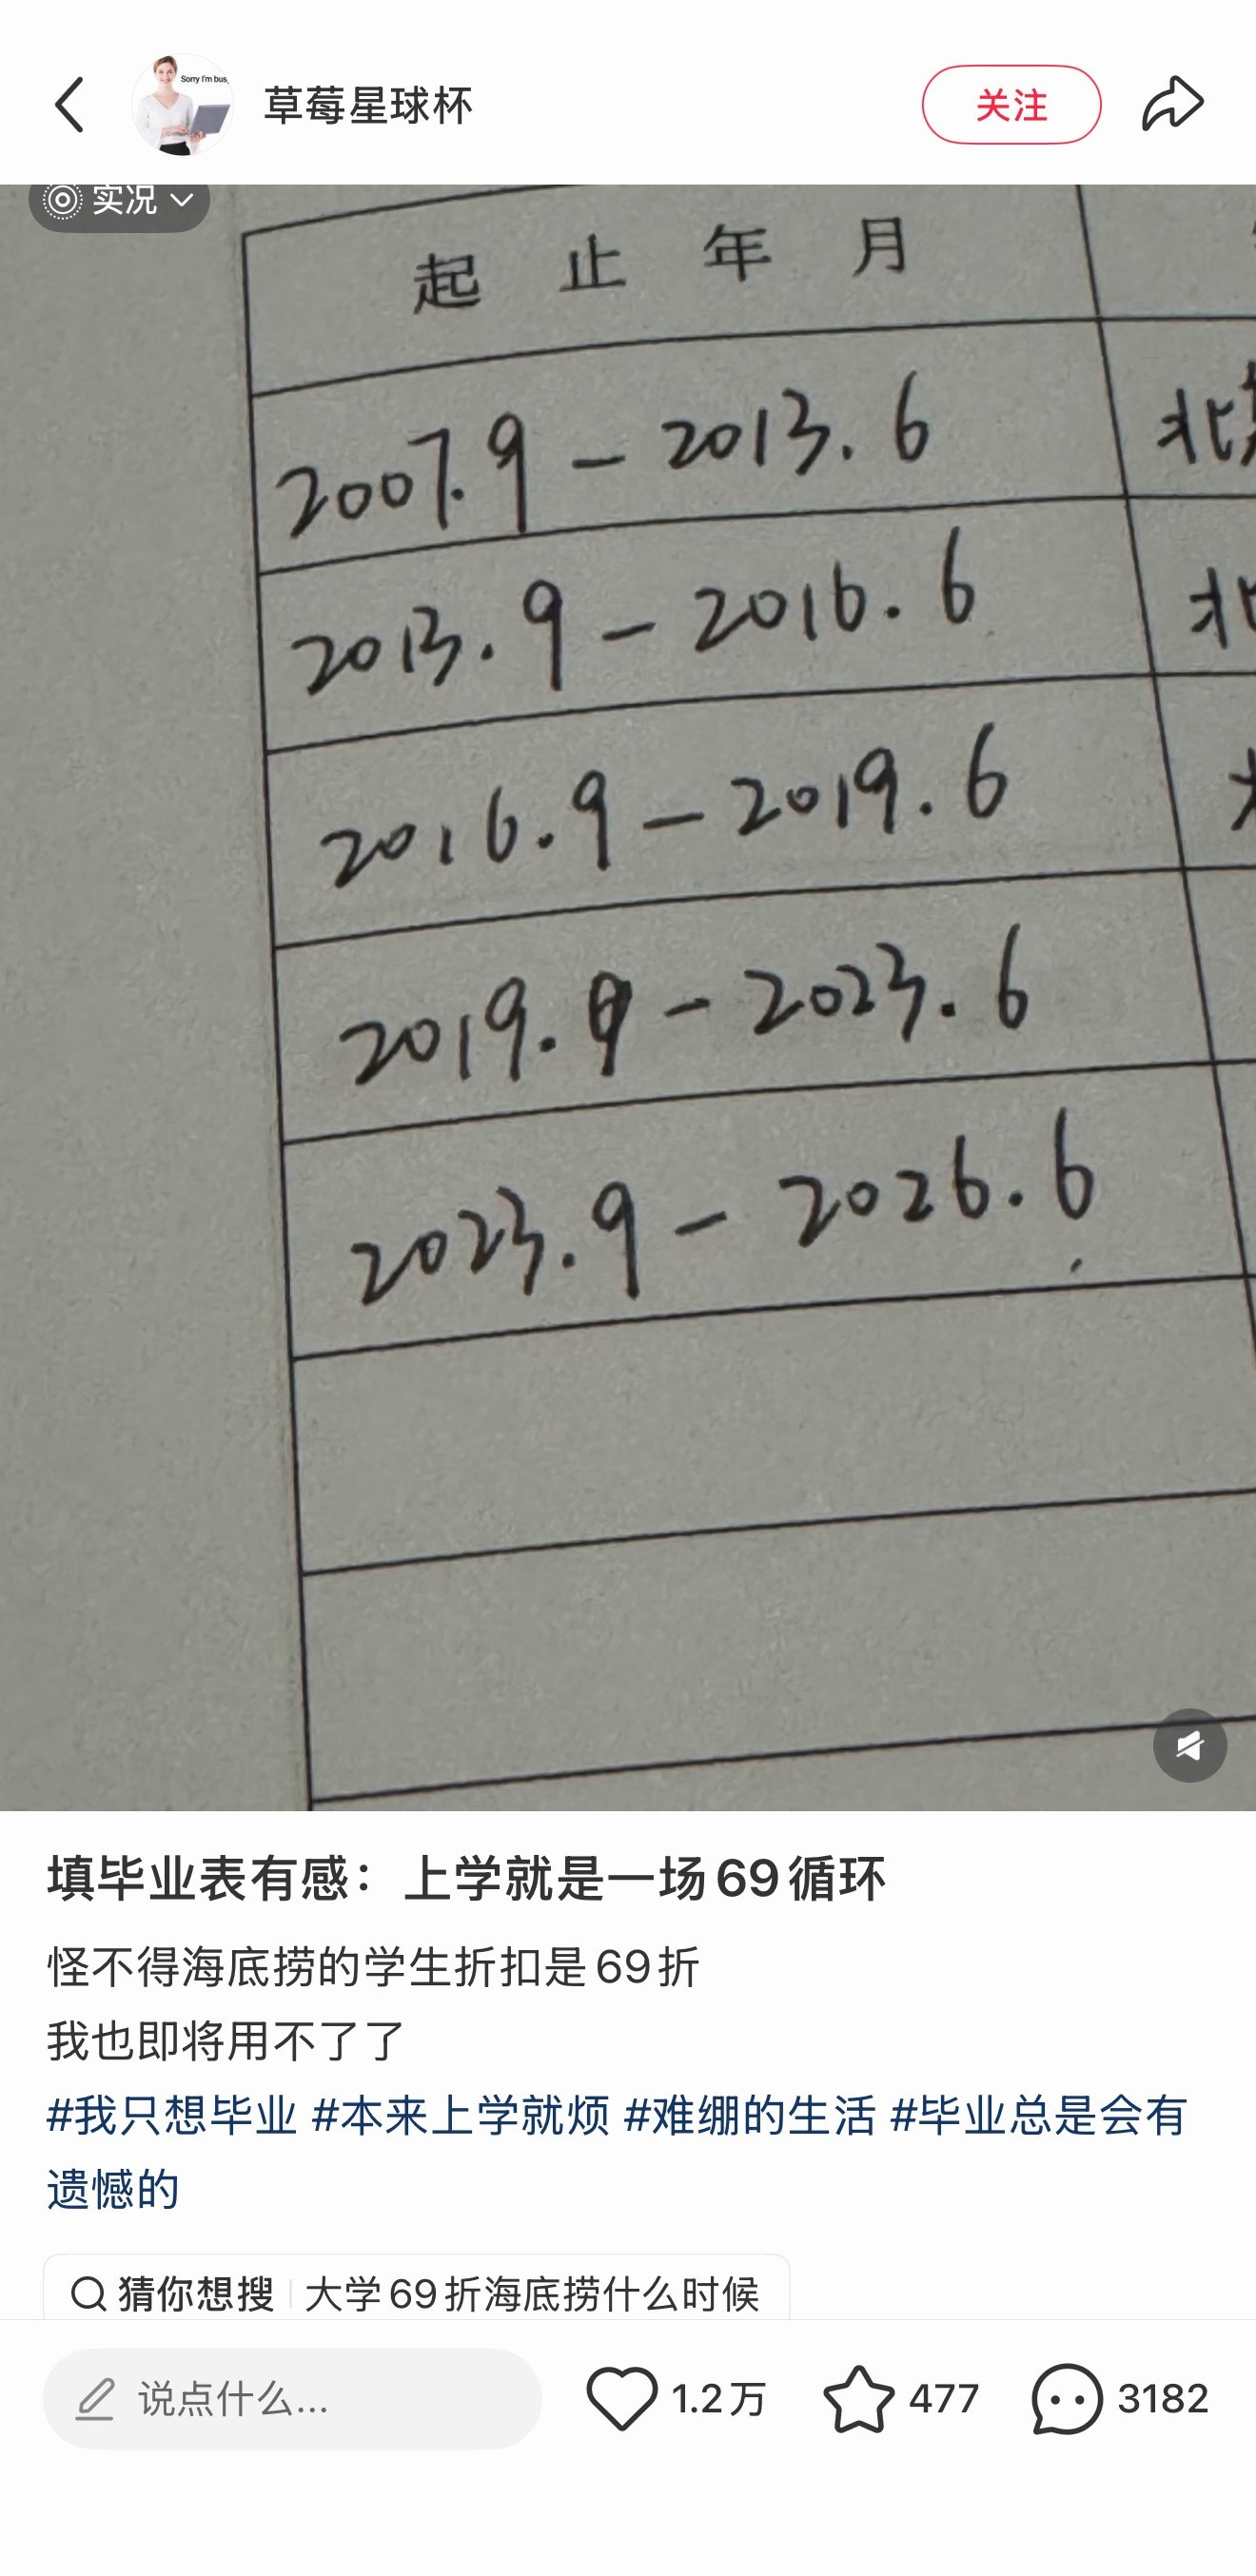 Sorry I'm bus
草莓星球杯
关注
实况
起止年月
2007.9 - 2013.6
北
2013.9 - 2016.6
北
2016.9 - 2019.6
2019.9 - 2023.6
2023.9 - 2026.6
填毕业表有感：上学就是一场69循环
怪不得海底捞的学生折扣是69折
我也即将用不了了
#我只想毕业 #本来上学就烦 #难绷的生活 #毕业总是会有
遗憾的
猜你想搜 大学69折海底捞什么时候
说点什么... 1.2万 477 3182